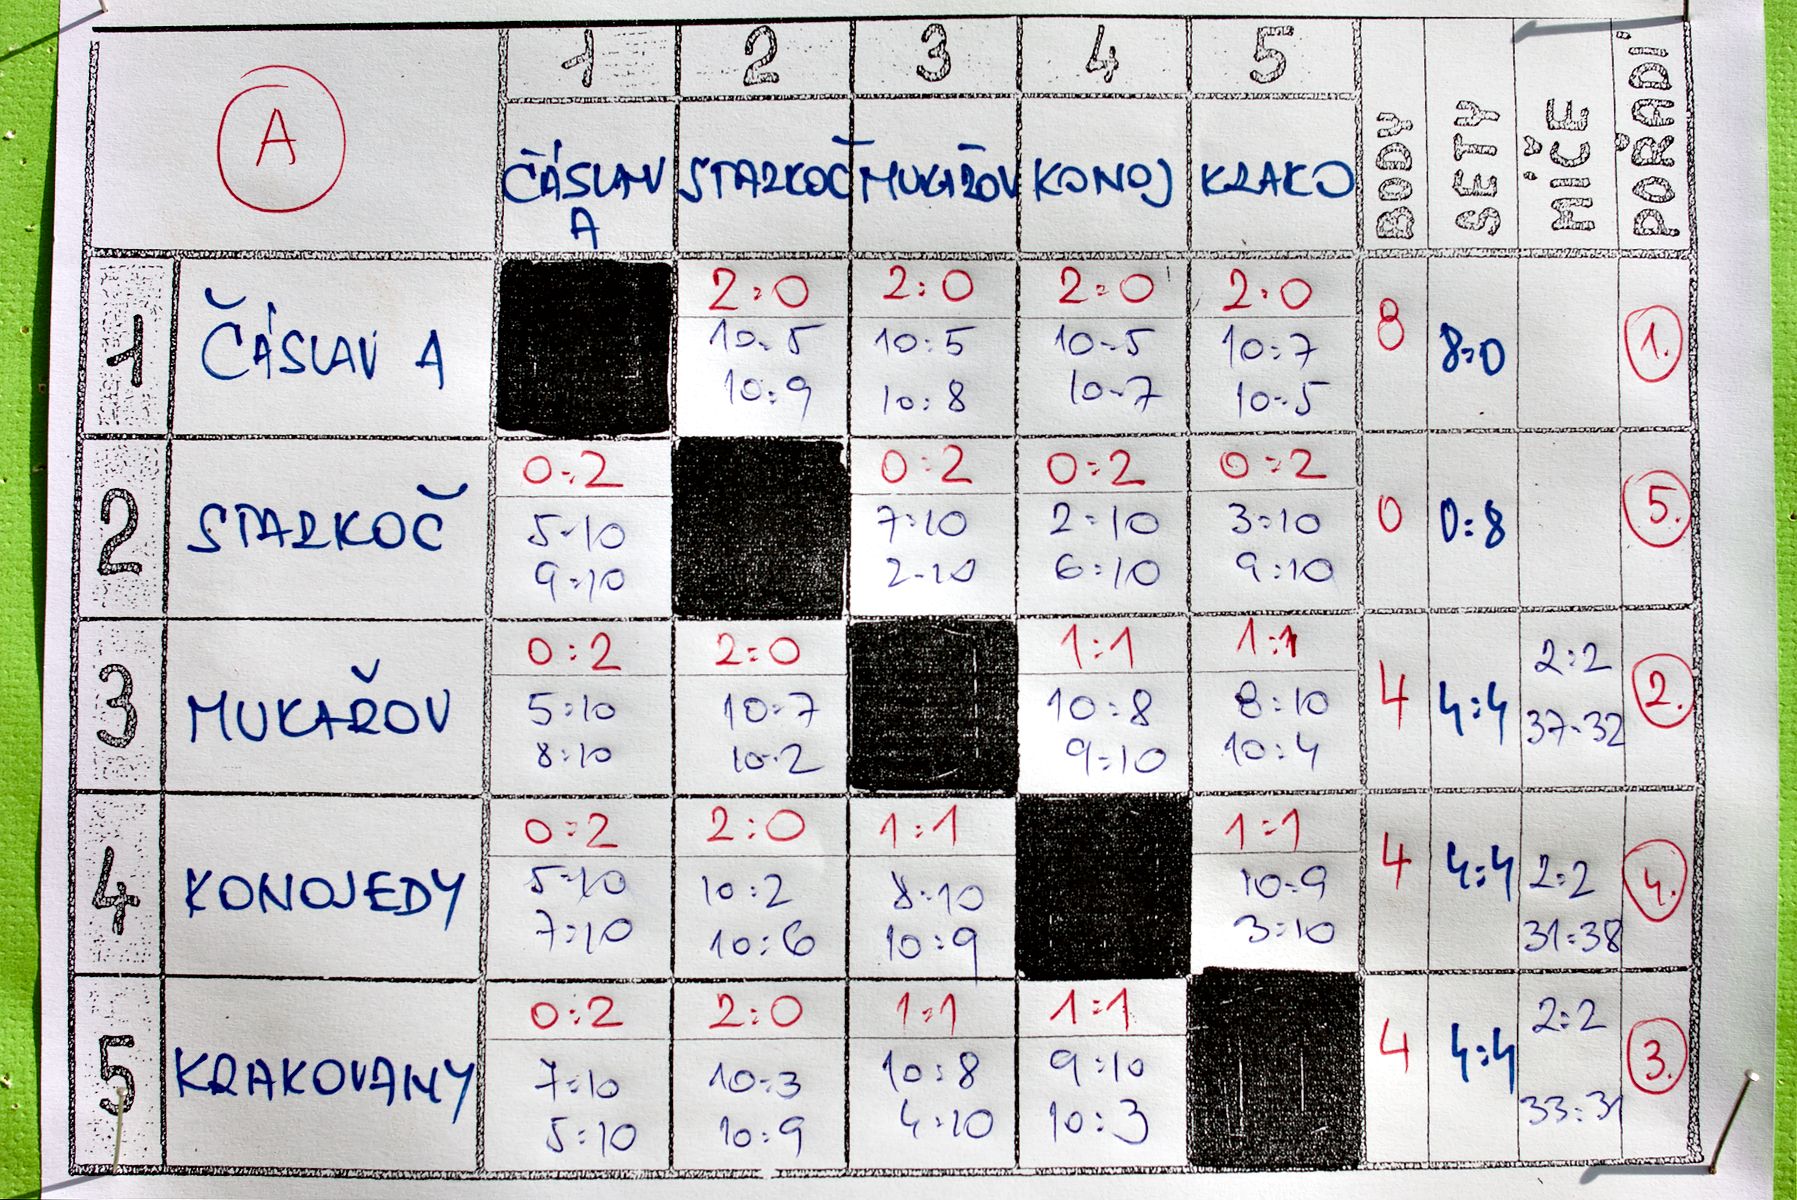 A
1 2 3 4 5
ČÁSLAV A STARKOČ MUKAŘOV KONOJ KRAKO BODY SETY MÍČE POŘADÍ
1 ČÁSLAV A 2:0 2:0 2:0 2:0 8 8:0 1.
10:5 10:5 10:5 10:7
10:9 10:8 10:7 10:5
2 STARKOČ 0:2 0:2 0:2 0:2 0 0:8 5.
5:10 7:10 2:10 3:10
9:10 2:10 6:10 9:10
3 MUKAŘOV 0:2 2:0 1:1 1:1 4 4:4 2:2 2.
5:10 10:7 10:8 8:10 37:32
8:10 10:2 9:10 10:4
4 KONOJEDY 0:2 2:0 1:1 1:1 4 4:4 2:2 4.
5:10 10:2 8:10 10:9 31:38
7:10 10:6 10:9 3:10
5 KRAKOVANY 0:2 2:0 1:1 1:1 4 4:4 2:2 3.
7:10 10:3 10:8 9:10 33:31
5:10 10:9 4:10 10:3